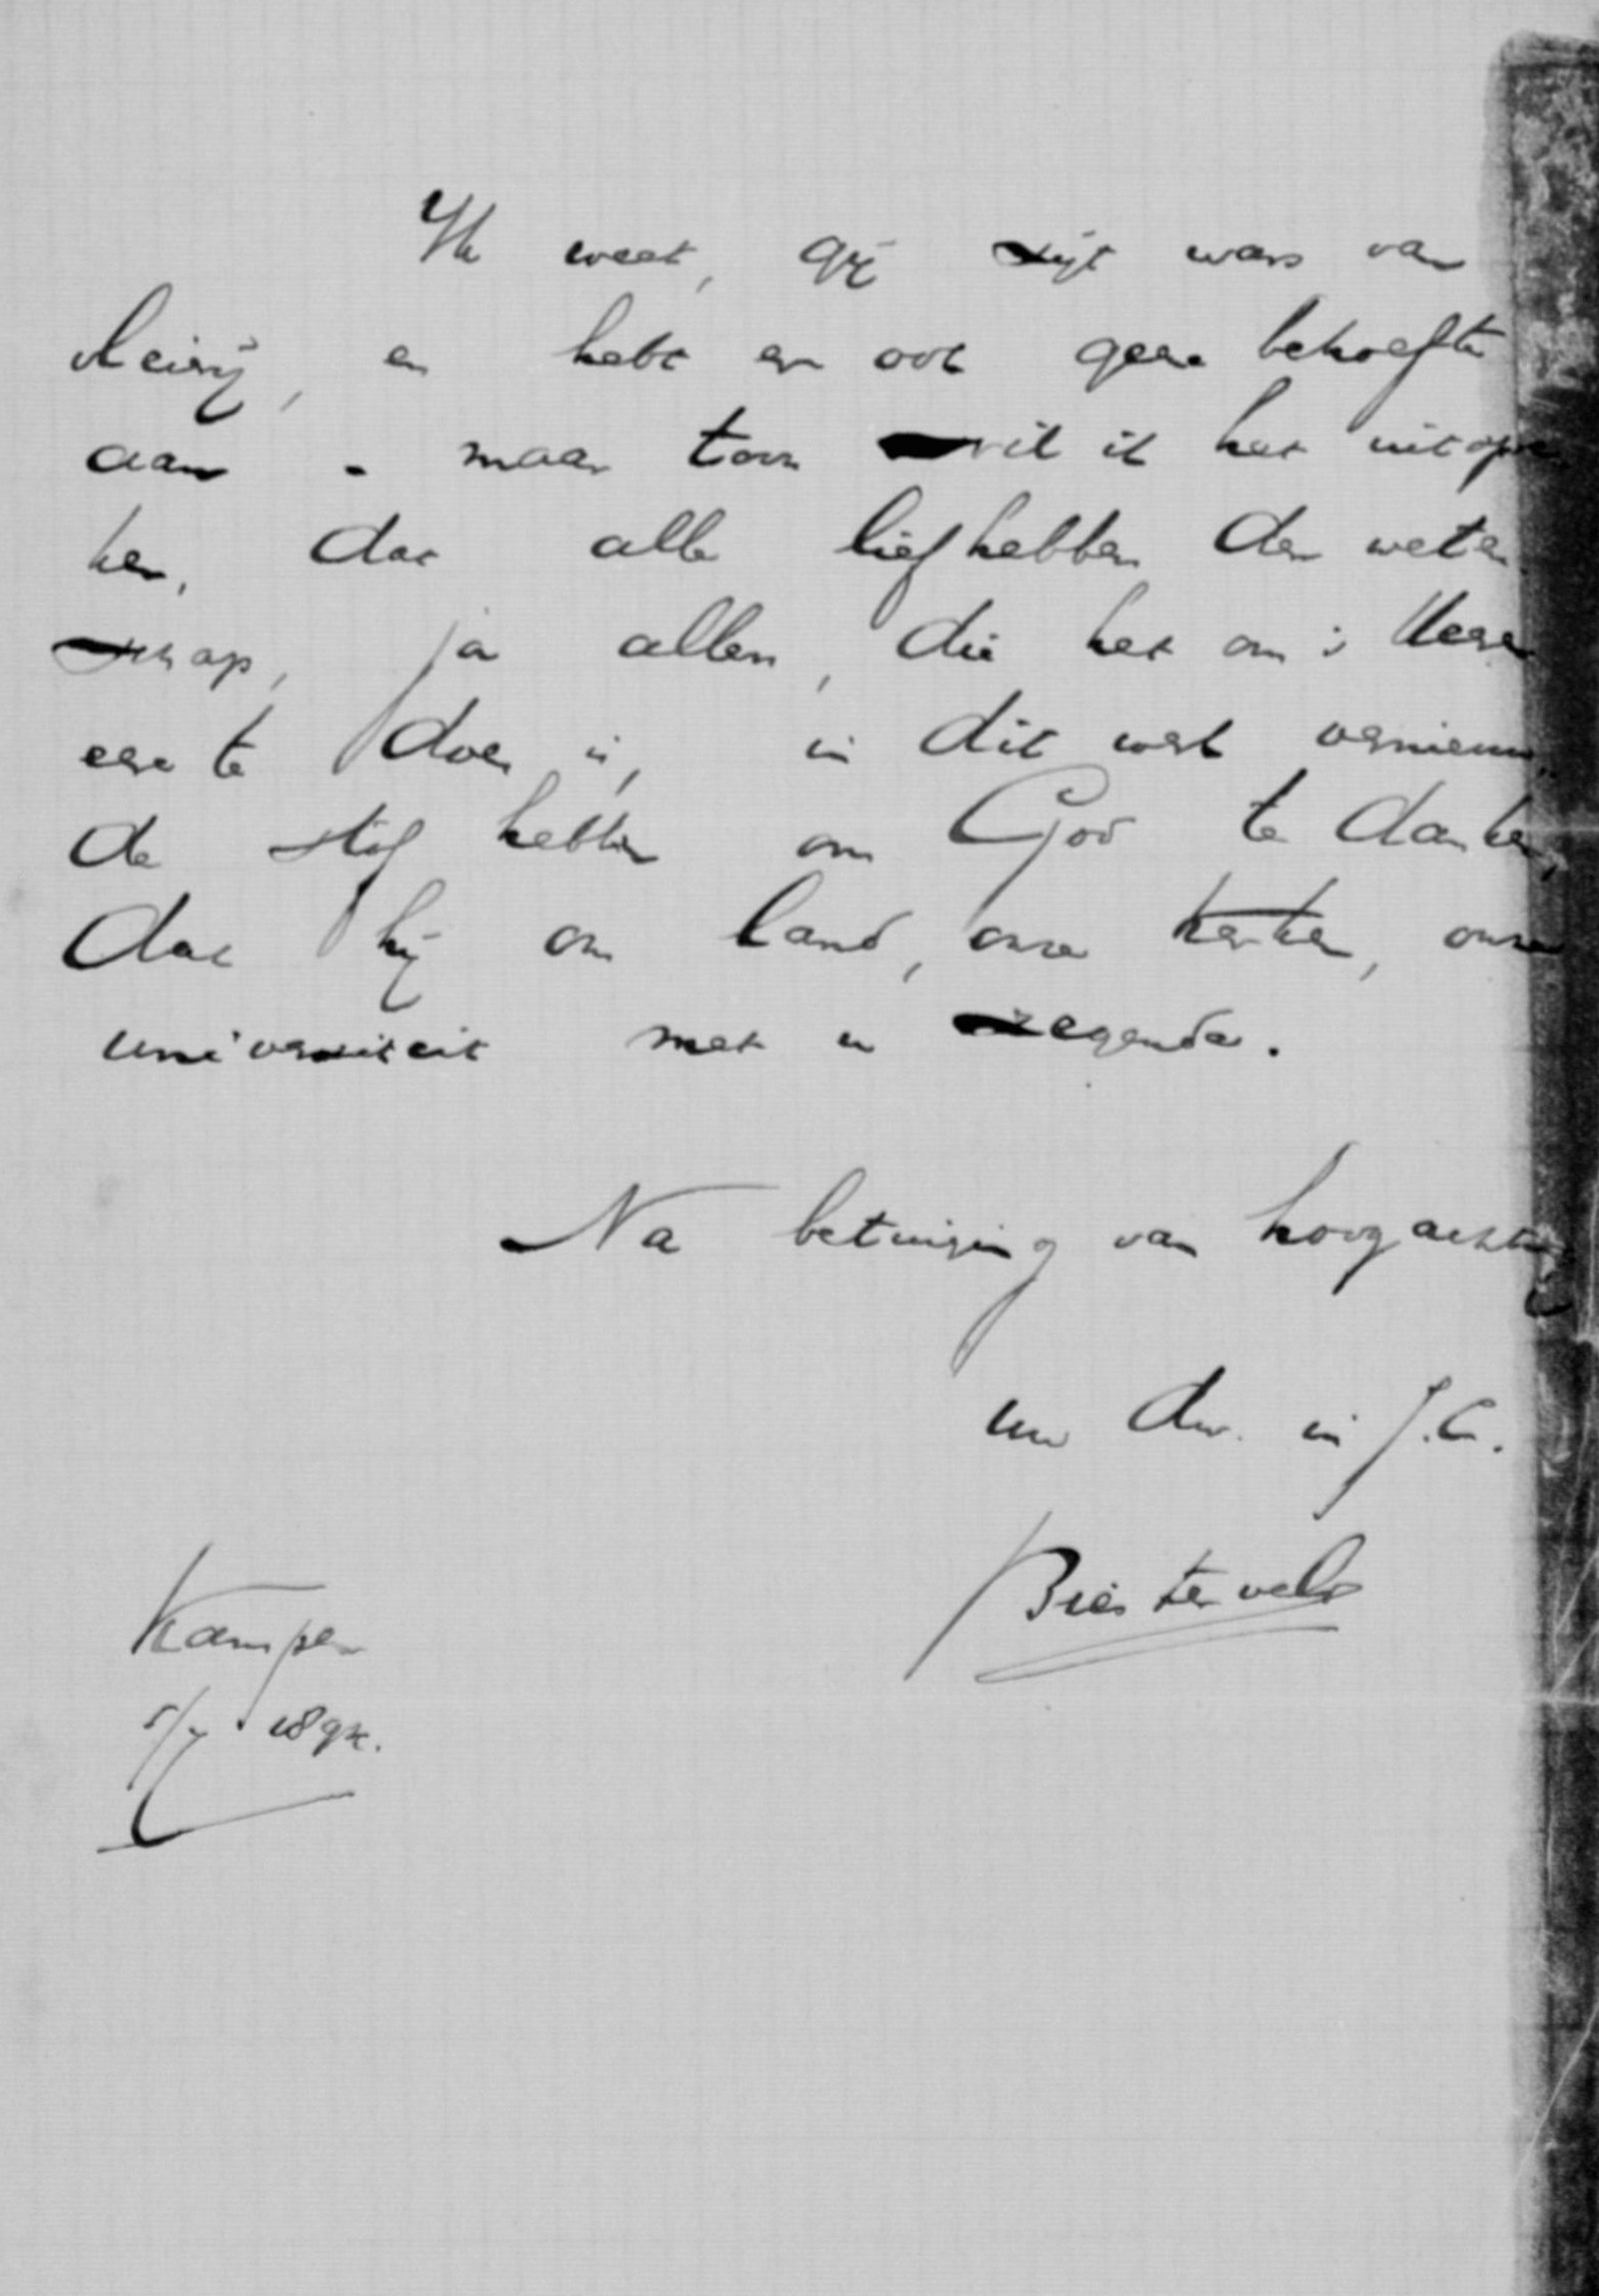 Ik weet, gij zijt wars van
vleierij, en hebt er ook geene behoefte
aan - maar toch wil ik het uitspre
ken, dat alle liefhebbers der weten
schap, ja allen, die het om 's Heeren
eere te doen is, in dit werk vernieuw
de stof hebben om God te danken,
dat hij ons land, onze kerken, onze
universiteit met u zegende.
Na betuiging van hoogachting
uw dw. in J.C.
Biesterveld
Kampen